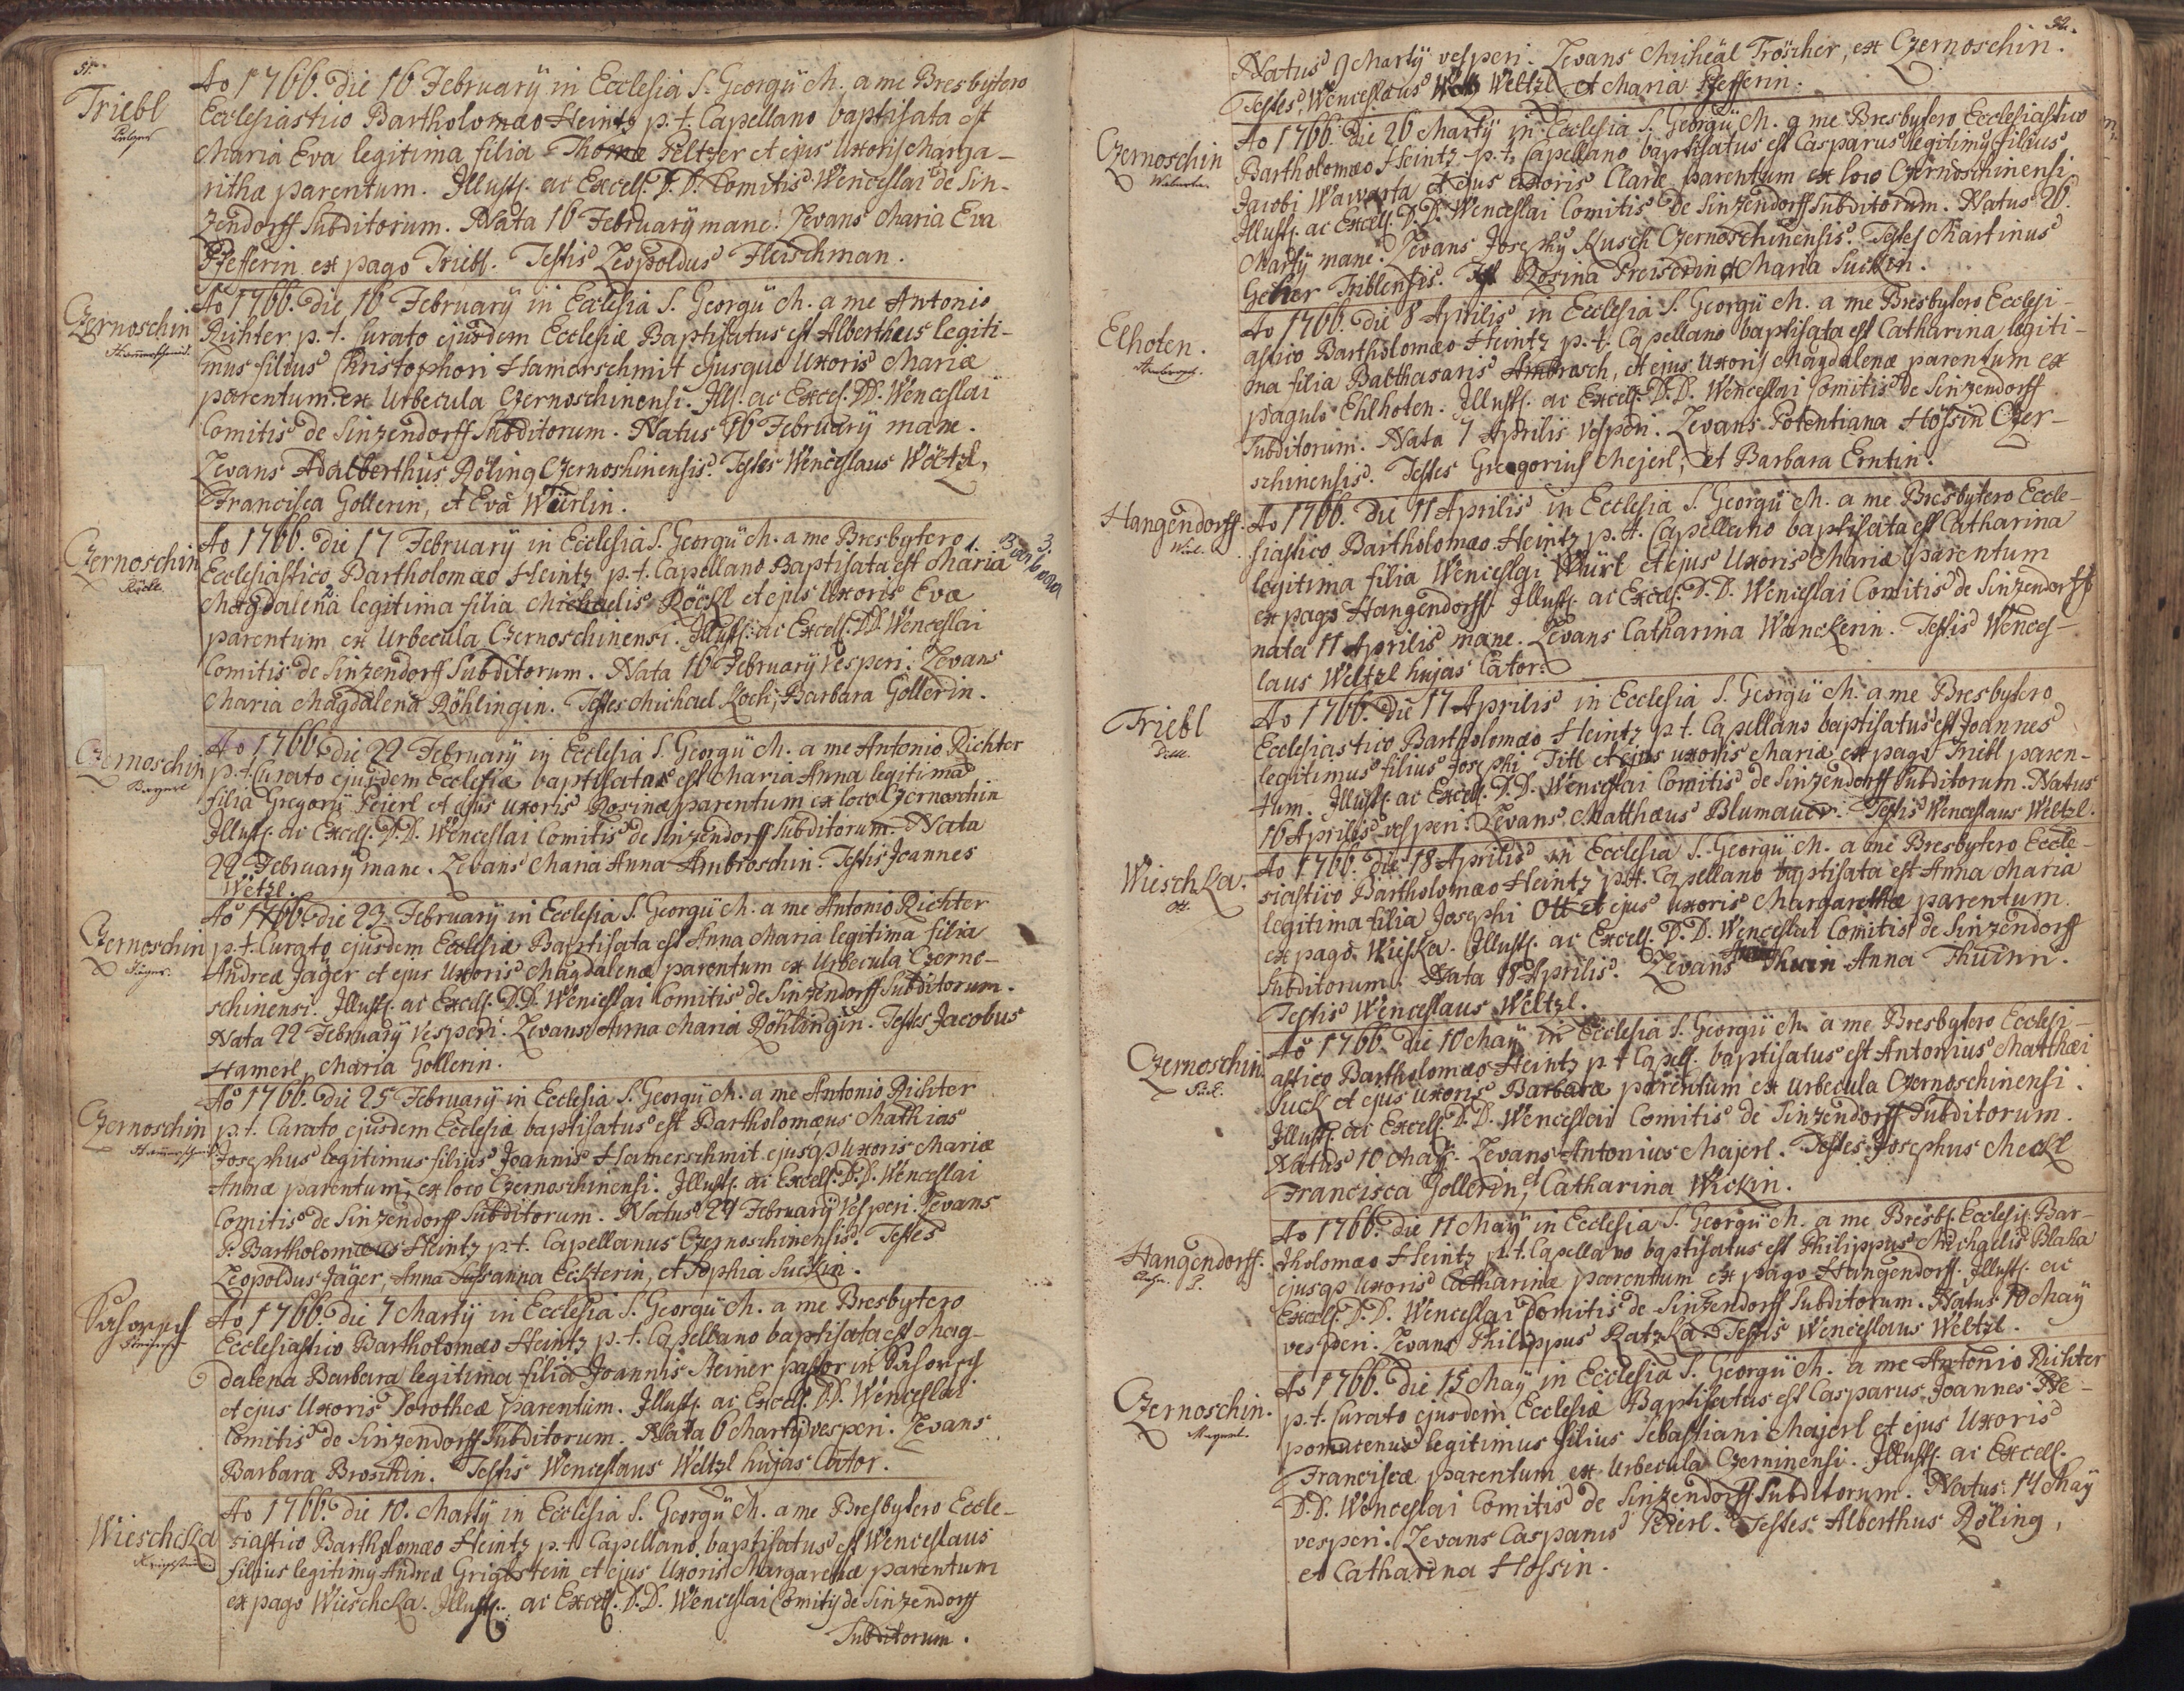 51.
Triebl
Ao 1766. Die 16 February in Ecclesia S. Georgÿ M. a me Presbytero
Ecclesiastico Bartholomæo Heintz p. t. Capellano baptisata est
Maria Eva legitima filia Thomæ Peltzer et ejus Uxoris Marga-
rithæ parentum. Illustſ. ac Excelſ. D. D. Comitis Wenceslai de Sin-
zendorff Subditorum. Nata 16 February mane. Levans Maria Eva
Pfefferin ex pago Triebl. Testis Leopoldus Fleischman.
Czernoschin
Hamerschmid.
Ao 1766. Die 16 February in Ecclesia S. Georgÿ M. a me Antonio
Richter p. t. Curato ejusdem Ecclesiæ Baptisatus est Alberthus legiti-
mus filius Christophori Hamerschmit ejusque Uxoris Mariæ
parentum ex Urbecula Czernoschinensi. Illſ. ac Excel. DD. Wenceslai
Comitis de Sinzendorff Subditorum. Natus 16 February mane.
Levans Adalberthus Röling Czernoshinensis. Testes Wenceslaus Wöltzl,
Francisca Gollerin, et Eva Würlin.
Czernoschin
Röckl.
Ao 1766. Die 17 February in Ecclesia S. Georgÿ M. a me Presbytero
Ecclesiastico Bartholomæo Heintz p. t. Capellano Baptisata est 1. Maria 3. Barbara
2. Magdalena legitima filia Michaelis Röckl et ejus Uxoris Evæ
parentum ex Urbecula Czernoschinensi. Illustſ. ac Excelſ. DD. Wenceslai
Comitis de Sinzendorff Subditorum. Nata 16 February vesperi. Levans
Maria Magdalena Röhlingin. Testes Michael Koch, Barbara Gollerin.
Czernoschin
Bayerl
Ao 1766. Die 22 February in Ecclesia S. Georgÿ M. a me Antonio Richter
p. t. Curato ejusdem Ecclesiæ baptisatas est Maria Anna legitima
filia Gregorÿ Peierl et ejus uxoris Rosinæ parentum ex loco Czernoschin
Illustſ. ac Excelſ. D. D. Wenceslai Comitis de Sinzendorff Subditorum. Nata
22 February mane. Levans Maria Anna Ambroschin. Testis Joannes
Wetzl.
Czernoschin
Jäger.
Ao 1766. Die 23 February in Ecclesia S. Georgÿ M. a me Antonio Richter
p. t. Curato ejusdem Ecclesiæ Baptisata est Anna Maria legitima filia
Andreæ Jäger et ejus Uxoris Magdalenæ parentum ex Urbecula Czerno-
schinensi. Illustſ. ac Excelſ. D. D. Wenceslai Comitis de Sinzendorff Subditorum.
Nata 22 February vesperi. Levans Anna Maria Röhlingin. Testes Jacobus
Hamerl, Maria Gollerin.
Czernoschin
Hamerschmid
Ao 1766. Die 25 February in Ecclesia S. Georgÿ M. a me Antonio Richter
p. t. Curato ejusdem Ecclesiæ baptisatus est Bartholomæus Mathias
Josephus legitimus filius Joannis Hamerschmit ejusq̃ Uxoris Mariæ
Annæ parentum, ex loco Czernoschinensi. Illustſ. ac Excelſ. D. D. Wenceslai
Comitis de Sinzendorff Subditorum. Natus 24 February vesperi. Levans
P. Bartholomæus Heintz p. t. Capellanus Czernoschinensis. Testes
Leopoldus Jäger, Anna Susanna Eckterin, et Sophia Suckin.
Ao 1766. Die 7 Martÿ in Ecclesia S. Georgÿ M. a me Presbytero
Ecclesiastico Bartholomæo Heintz p. t. Capellano baptisata est Mag-
dalena Barbara legitima filia Joannis Steiner pastor in
et ejus Uxoris Dorotheæ parentum. Illustſ. ac Excelſ. D. D. Wenceslai
Comitis de Sinzendorff Subditorum. Nata 6 Martÿ vesperi. Levans
Barbara Broschin. Testis Wenceslaus Weltzl hujas Cator.
Wieschcka
Ao 1766. Die 10. Martÿ in Ecclesia S. Georgÿ M. a me Presbytero Eccle-
siastico Bartholomæo Heintz p. t. Capellano baptisatus est Wenceslaus
filius legitimus Andreæ Griglstein et ejus Uxoris Margarethæ parentum
ex pago Wieschcka. Illustſ. ac Excelſ. D. D. Wenceslai Comitis de Sinzendorff
Subditorum.
52.
Natus 9 Martÿ vesperi. Levans Micheäl Tröscher, ex Czernoschin.
Testes, Wenceslaus Weltzl et Maria Pfefferin.
Czernoschin
Ao 1766. Die 26 Martÿ in Ecclesia S. Georgÿ M. a me Presbytero Ecclesiastico
Bartholomæo Heintz p. t. Capellano baptisatus est Casparus legitimus filius
Jacobi Wawarta et ejus uxoris Claræ parentum ex loco Czernoschinensi
Illustſ. ac Excelſ. D. D. Wenceslai Comitis de Sinzendorff Subditorum. Natus 26.
Martÿ mane. Levans Josephus Kusch Czernoschinensis. Testes Martinus
Geher Triblensis. Rosina Preiserin et Maria Suckin.
Elhoten.
Ao 1766. Die 8 Aprilis in Ecclesia S. Georgÿ M. a me Presbytero Ecclesi-
astico Bartholomæo Heintz p. t. Capellano baptisata est Catharina legiti-
ma filia Balthasaris Ambrosch, et ejus Uxoris Magdalenæ parentum ex
pagulo Ehlhoten. Illustſ. ac Excelſ. D. D. Wenceslai Comitis de Sinzendorff
Subditorum. Nata 7 Aprilis vesperi. Levans Potentiana Hössin Czer-
schinensis. Testes Gregorius Mejerl, et Barbara Erntin.
Hangendorff.
Ao 1766. Die 11 Aprilis in Ecclesia S. Georgÿ M. a me Presbytero Eccle-
siastico Bartholomæo Heintz p. t. Capellano baptisata est Catharina
legitima filia Wenceslai Würl et ejus Uxoris Mariæ parentum
ex pago Hangendorff. Illustſ. ac Excelſ. D. D. Wenceslai Comitis de Sinzendorff
nata 11 Aprilis mane. Levans Catharina Wanckerin. Testis Wences-
laus Weltzl hujas Cator.
Triebl
Ao 1766. Die 17 Aprilis in Ecclesia S. Georgÿ M. a me Presbytero
Ecclesiastico Bartholomæo Heintz p. t. Capellano baptisatus est Joannes
legitimus filius Josephi Titl et ejus uxoris Mariæ, ex pago Triebl paren-
tum. Illustſ. ac Excelſ. D. D. Wenceslai Comitis de Sinzendorff Subditorum. Natus
16 Aprilis vesperi. Levans Matthæus Blumauer. Testis Wenceslaus Weltzl.
Wieschka.
Ott.
Ao 1766. Die 18 Aprilis in Ecclesia S. Georgÿ M. a me Presbytero Eccle-
siastico Bartholomæo Heintz p. t. Capellano baptisata est Anna Maria
legitima filia Josephi Ott et ejus uxoris Margarethæ parentum
ex pago Wieska. Illustſ. ac Excelſ. D. D. Wenceslai Comitis de Sinzendorff
Subditorum. Nata 18 Aprilis. Levans Thurin Anna Thurnn.
Testis Wenceslaus Weltzl.
Czernoschin.
Suck.
Ao 1766. Die 10 Maÿ in Ecclesia S. Georgÿ M. a me Presbytero Ecclesi-
astico Bartholomæo Heintz p. t. Capelſ. baptisatus est Antonius Matthæi
Suck et ejus uxoris Barbaræ parentum ex urbecula Czernoschinensi.
Illustſ. ac Excelſ. D. D. Wenceslai Comitis de Sinzendorff Subditorum.
Natus 10 Maÿ. Levans Antonius Majerl. Testes Josephus Meckl
Francisca Gollerin, et Catharina Wickin.
Hangendorff.
Ao 1766. Die 11 Maÿ in Ecclesia S. Georgÿ M. a me Presbſ. Ecclesiſ. Bar-
tholomæo Heintz p. t. Capellano baptisatus est Philippus Michaelis Blaha
ejusq̃ uxoris Catharinæ parentum ex pago Hangendorff. Illustſ. ac
Excelſ. D. D. Wenceslai Comitis de Sinzendorff Subditorum. Natus 10 Maÿ
vesperi. Levans Philippus Ratzka. Testis Wenceslaus Weltzl.
Czernoschin.
Mayerl.
Ao 1766. Die 15 Maÿ in Ecclesia S. Georgÿ M. a me Antonio Richter
p. t. Curato ejusdem Ecclesiæ Baptisatus est Casparus Joannes Ne-
pomucenus legitimus filius Sebastiani Majerl et ejus Uxoris
Franciscæ parentum ex Urbecula Czerninensi. Illustſ. ac Excelſ.
D. D. Wenceslai Comitis de Sinzendorff Subditorum. Natus 14 Maÿ
vesperi. Levans Casparus Peierl. Testes Alberthus Röling,
et Catharina Hossin.